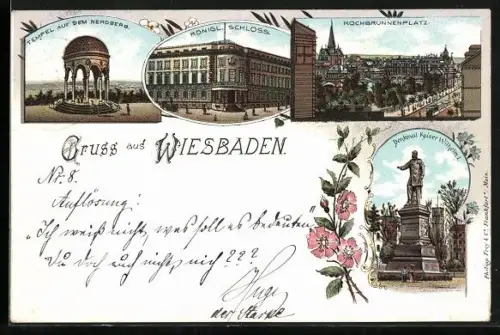 TEMPEL AUF DEM NEROBERG.
KÖNIGL. SCHLOSS.
KOCHBRUNNENPLATZ.
Gruss aus WIESBADEN.
Denkmal Kaiser Wilhelm I.
Nr. 8.
Auflösung:
„Ich weiß nicht, was soll es bedeuten"
Du doch auch nicht, nich ???
Hugo
der Starke
Philipp Frey & Co. Frankfurt a. Main.